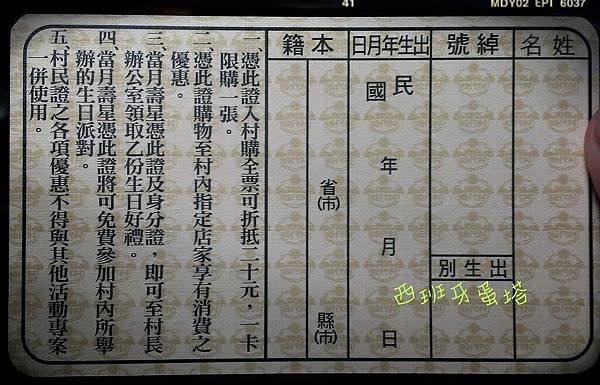 41
MDY02 EPI 6037
姓名
綽號
出生別
出生年月日
民國　年　月　日
本籍
省(市)
縣(市)
一、憑此證入村購全票可折抵二十元，一卡
限購一張。
二、憑此證購物至村內指定店家享有消費之
優惠。
三、當月壽星憑此證及身分證，即可至村長
辦公室領取乙份生日好禮。
四、當月壽星憑此證將可免費參加村內所舉
辦的生日派對。
五、村民證之各項優惠不得與其他活動專案
一併使用。
西班牙蛋塔